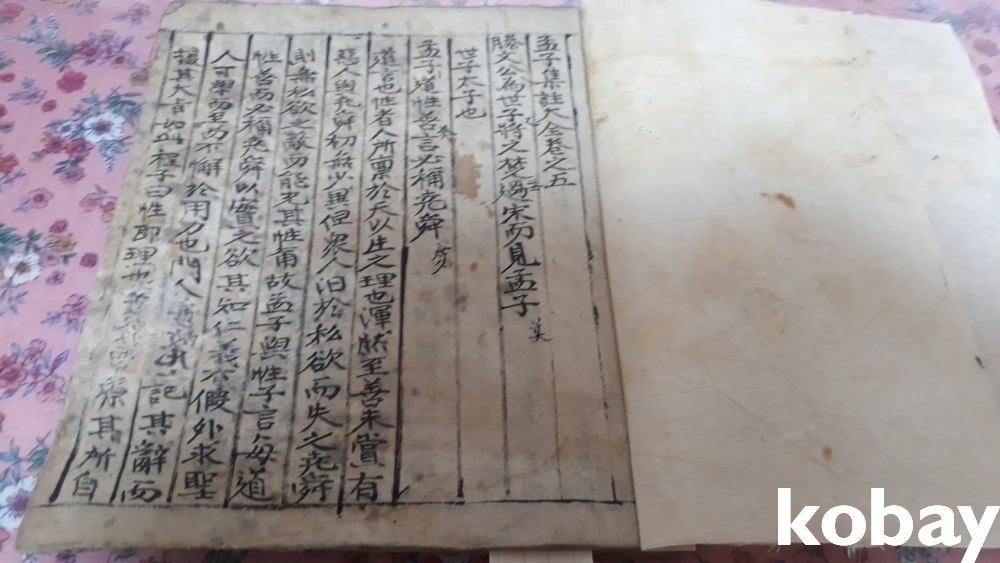 孟子集註大全卷之五
滕文公爲世子將之楚過宋而見孟子
世子太子也
孟子道性善言必稱堯舜
道言也性者人所禀於天以生之理也渾然至善未嘗有
惡人與堯舜初無少異但衆人汨於私欲而失之堯舜
則無私欲之蔽而能充其性爾故孟子與性子言每道
性善而必稱堯舜以實之欲其知仁義不假外求聖
人可學而至而不懈於用力也門人記其辭而
撮其大旨如此程子曰性即理也原其所自
kobay